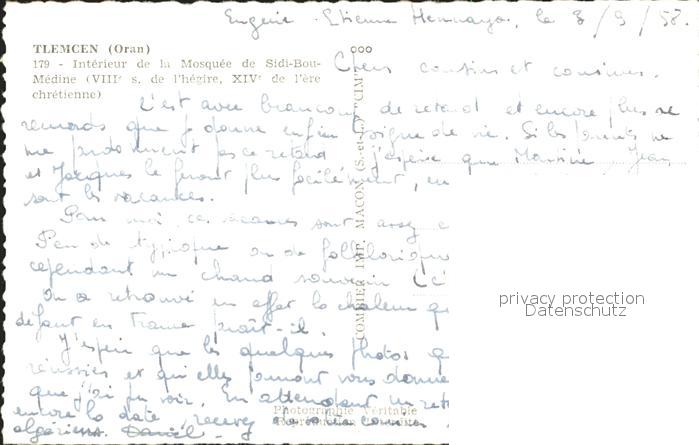 Eugène-Etienne Hennaya, le 3/9/58.
TLEMCEN (Oran)
179 - Intérieur de la Mosquée de Sidi-Bou-
Médine (VIIIe s. de l'hégire, XIVe de l'ère
chrétienne)
Chers cousins et cousines.
C'est avec beaucoup de retard et encore plus de
remords que je donne enfin signe de vie. Si les parents ne
me pardonnent pas ce retard j'espère que Martine, Jean
et Jacques le feront plus facilement, en
sont les vacances.
Pour moi, ces vacances sont assez
Peu de typique ou de folklorique
cependant un chaud souvenir
On a retrouvé en effet la chaleur qui
défaut en France paraît-il.
J'espère que les quelques photos
réussies et qu'elles pourront vous donner
que j'ai pu voir. En attendant un
encore la date, recevez
algériens. Daniel.
COMBIER IMP. MACON (S.-et-L.) "CIM"
Photographie Véritable
Reproduction Interdite
privacy protection
Datenschutz